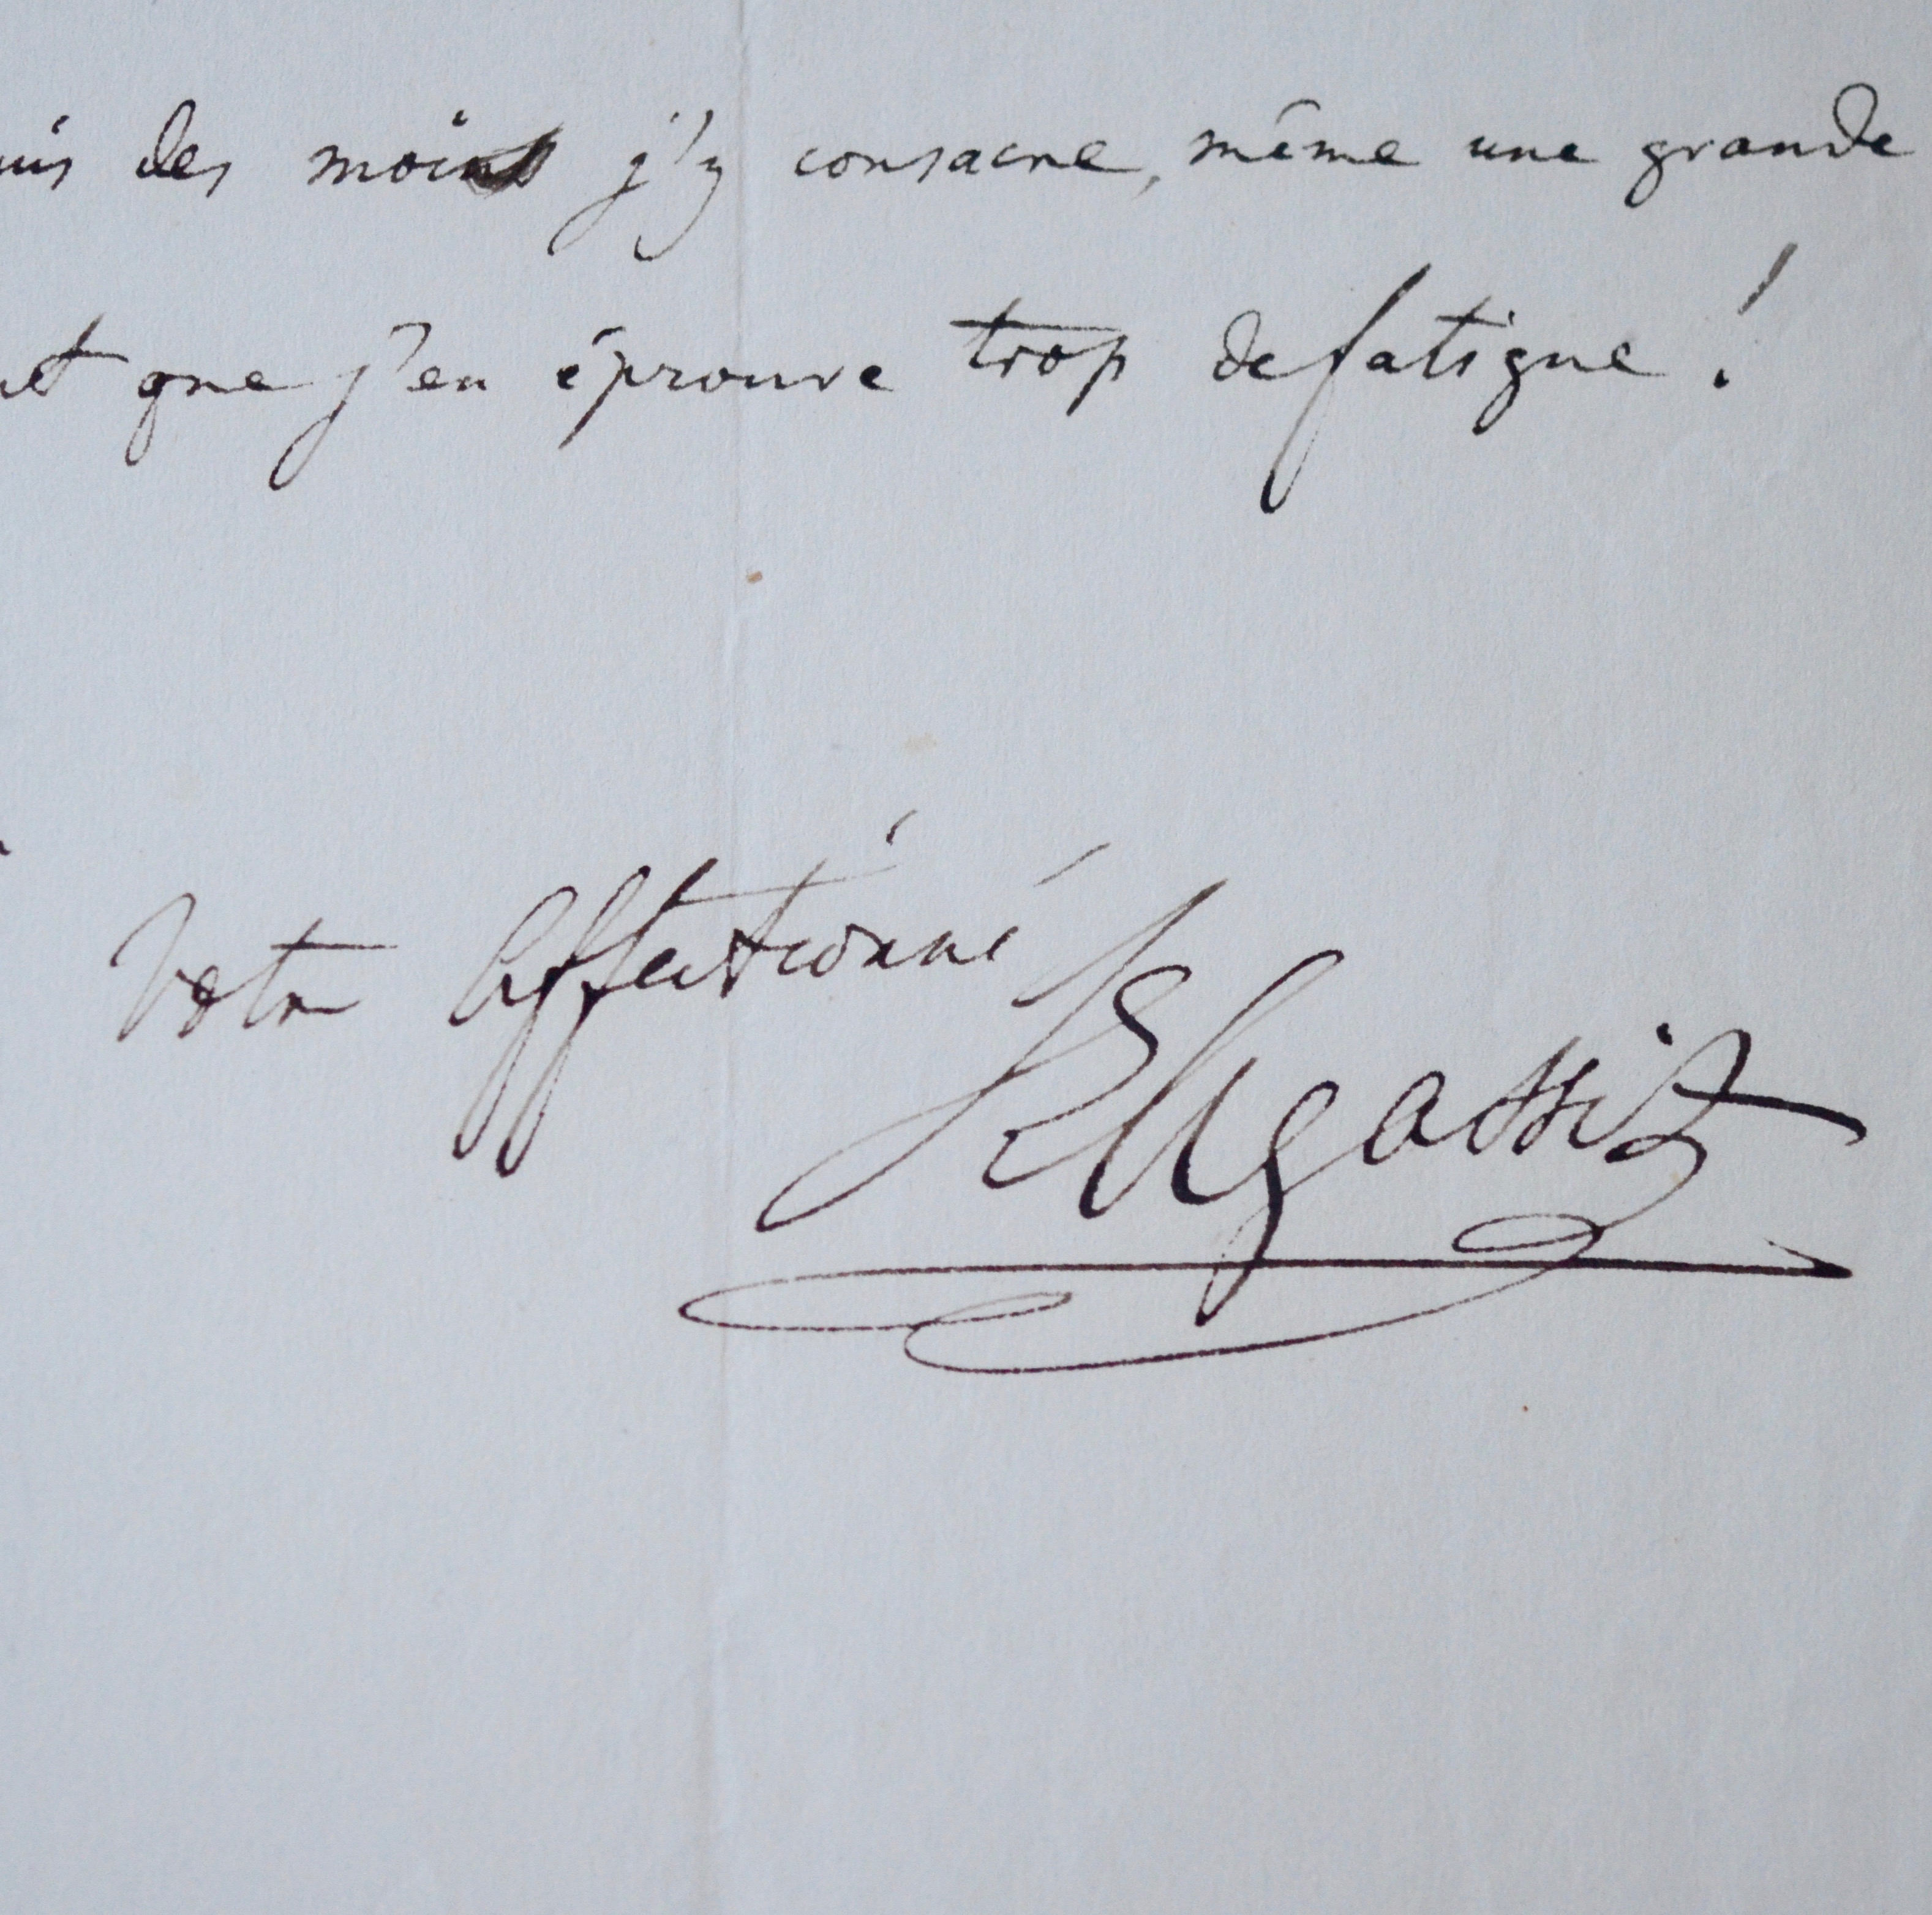 des mois j'y consacre, même une grande
que j'en éprouve trop de fatigue !
Votre affectionné